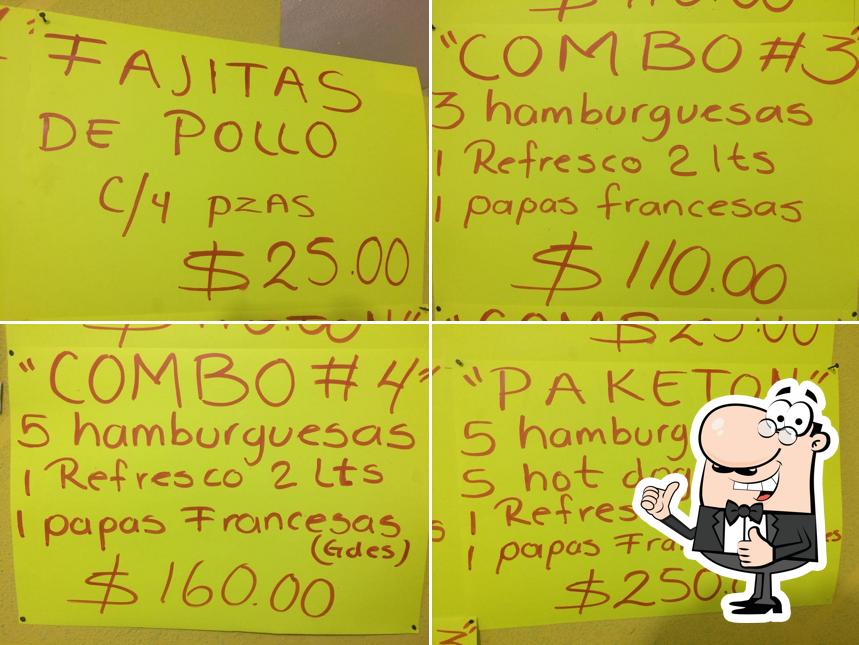 "FAJITAS
DE POLLO
C/4 PZAS
$25.00
"COMBO #3"
3 hamburguesas
1 Refresco 2 lts
1 papas francesas
$110.00
"COMBO #4"
5 hamburguesas
1 Refresco 2 Lts
1 papas Francesas
(Gdes)
$160.00
"PAKETON"
5
5 hot
1
1 papas